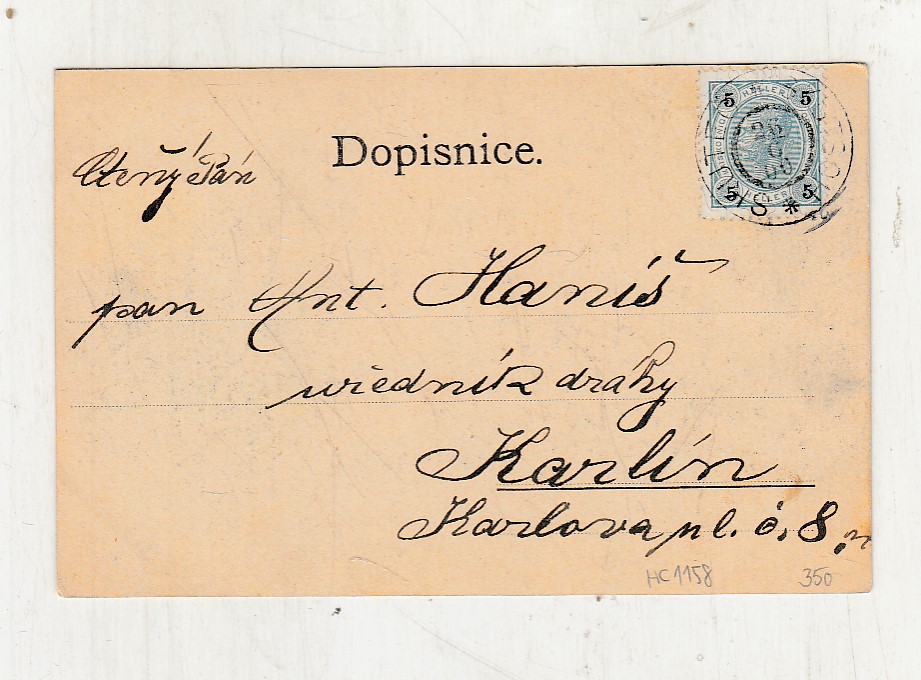 Dopisnice.
Ctený Pán
5 HELLER 5
5 HELLER 5
pan Ant. Haníš
uředník dráhy
Karlín
Karlova pl. č. 8.
HC1158 350